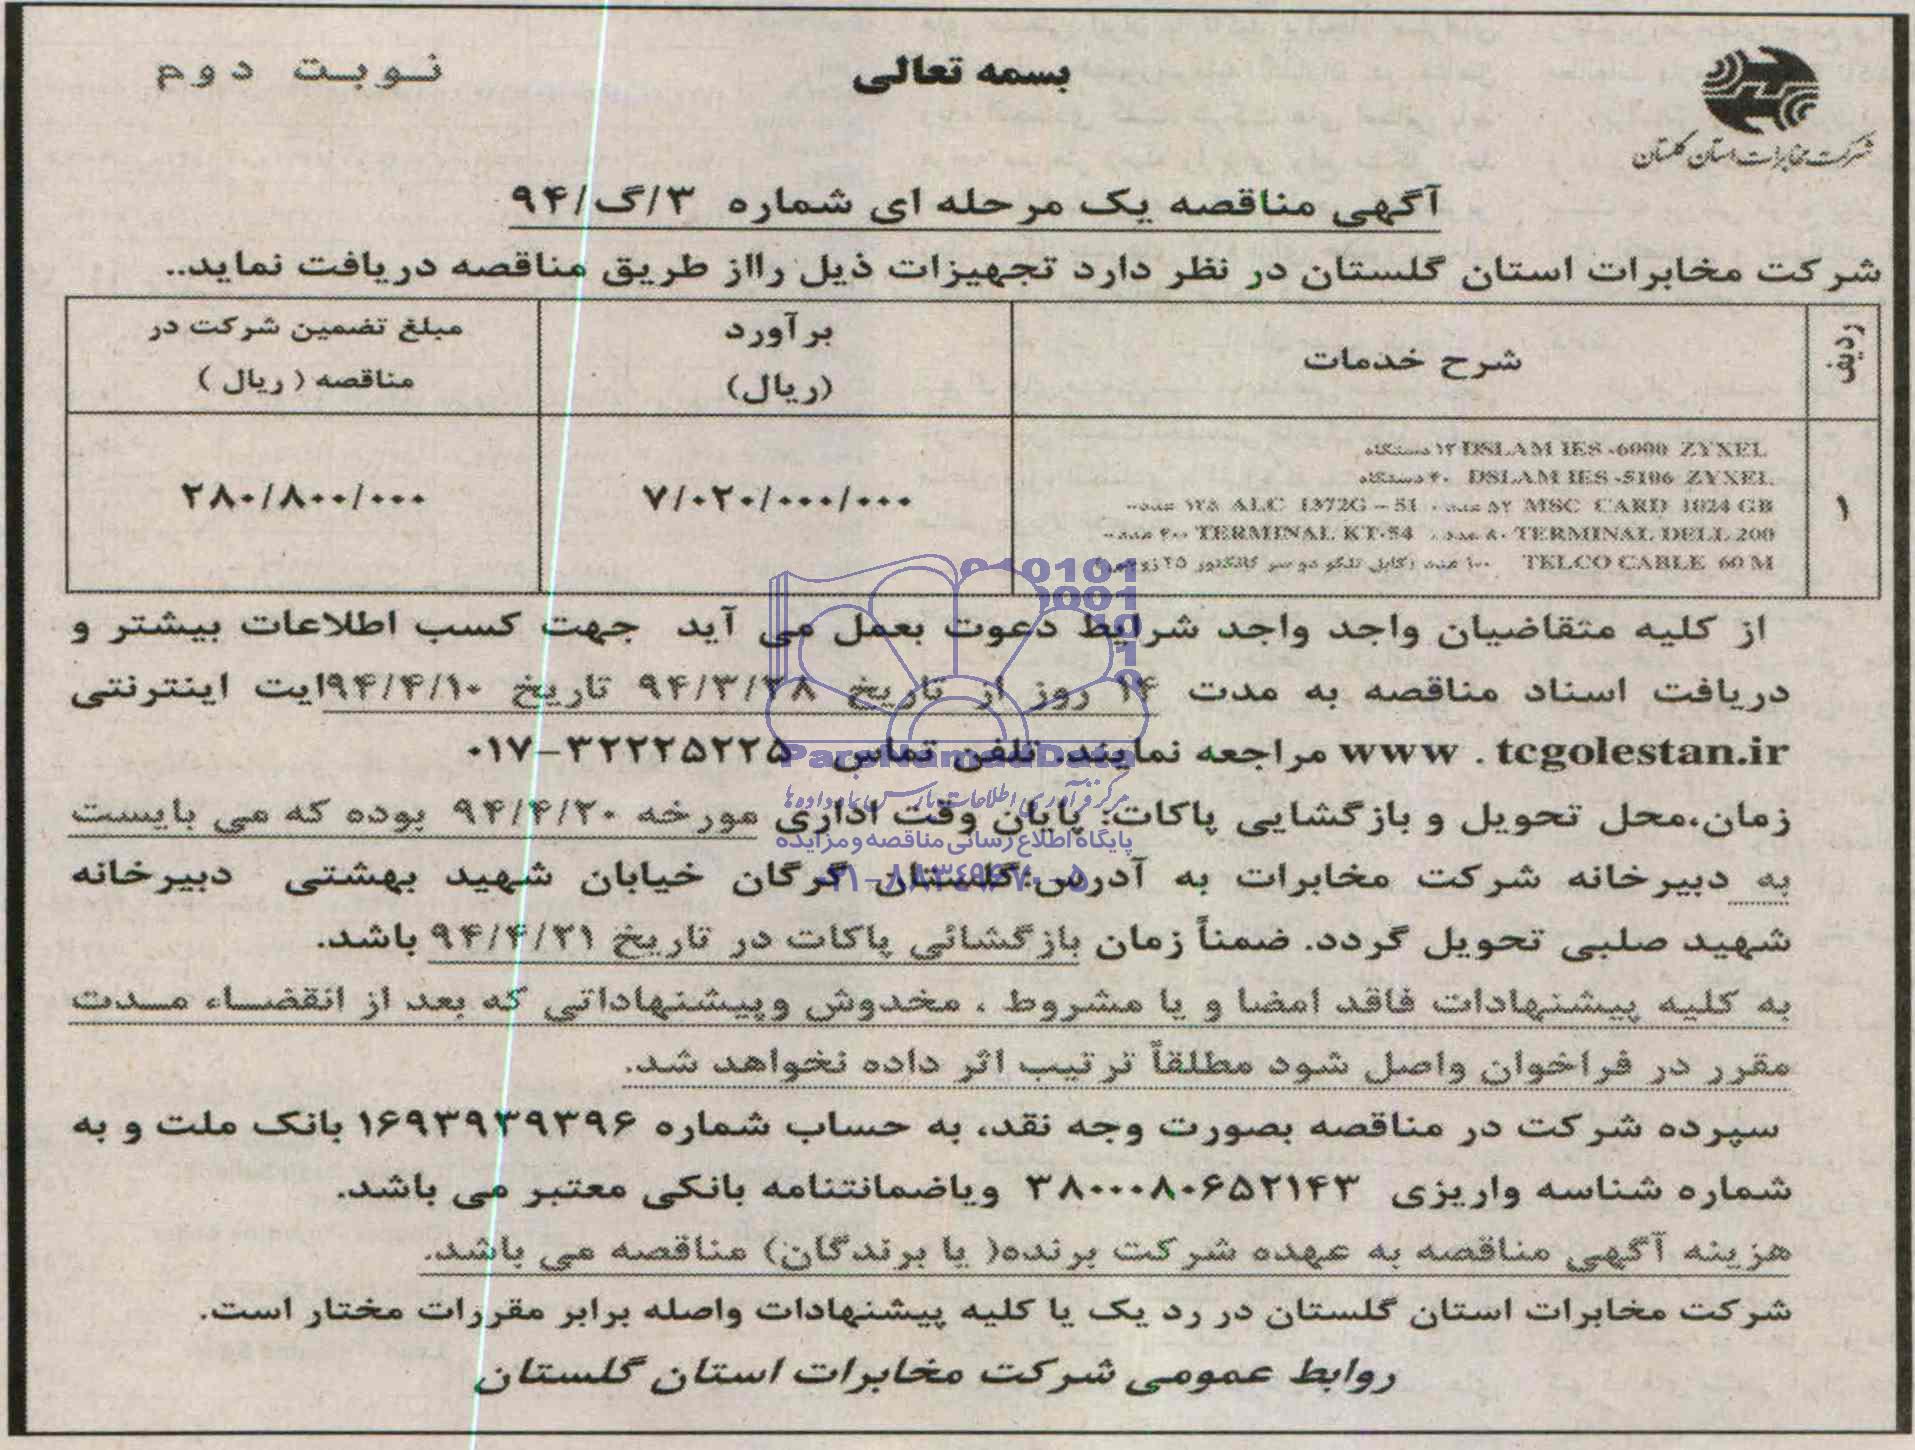 شرکت مخابرات استان گلستان
بسمه تعالی
نوبت دوم
آگهی مناقصه یک مرحله ای شماره ۳/گ/۹۴
شرکت مخابرات استان گلستان در نظر دارد تجهیزات ذیل رااز طریق مناقصه دریافت نماید..
ردیف
شرح خدمات
برآورد
(ریال)
مبلغ تضمین شرکت در
مناقصه ( ریال )
۱
DSLAM IES -6000 ZYXEL ۱۲ دستگاه
DSLAM IES -5106 ZYXEL ۴۰ دستگاه
MSC CARD 1024 GB ۵۲ عدد - ALC 1372G – 51 ۱۲۵ عدد--
TERMINAL DELL 200 ۸۰ عدد - TERMINAL KT-54 ۲۰۰ عدد--
TELCO CABLE 60 M ۱۰۰ عدد (کابل تلکو دو سر کانکتور ۲۵ زوجی)
۷/۰۲۰/۰۰۰/۰۰۰
۲۸۰/۸۰۰/۰۰۰
از کلیه متقاضیان واجد واجد شرایط دعوت بعمل می آید جهت کسب اطلاعات بیشتر و
دریافت اسناد مناقصه به مدت ۱۴ روز از تاریخ ۹۴/۳/۲۸ تاریخ ۹۴/۴/۱۰ایت اینترنتی
www . tcgolestan.ir مراجعه نمایند. تلفن تماس ۳۲۲۲۵۲۲۵-۰۱۷
زمان،محل تحویل و بازگشایی پاکات: پایان وقت اداری مورخه ۹۴/۴/۲۰ بوده که می بایست
به دبیرخانه شرکت مخابرات به آدرس:گلستان گرگان خیابان شهید بهشتی دبیرخانه
شهید صلبی تحویل گردد. ضمناً زمان بازگشائی پاکات در تاریخ ۹۴/۴/۲۱ باشد.
به کلیه پیشنهادات فاقد امضا و یا مشروط ، مخدوش وپیشنهاداتی که بعد از انقضاء مدت
مقرر در فراخوان واصل شود مطلقاً ترتیب اثر داده نخواهد شد.
سپرده شرکت در مناقصه بصورت وجه نقد، به حساب شماره ۱۶۹۳۹۳۹۳۹۶ بانک ملت و به
شماره شناسه واریزی ۳۸۰۰۰۸۰۶۵۲۱۴۳ ویاضمانتنامه بانکی معتبر می باشد.
هزینه آگهی مناقصه به عهده شرکت برنده( یا برندگان) مناقصه می باشد.
شرکت مخابرات استان گلستان در رد یک یا کلیه پیشنهادات واصله برابر مقررات مختار است.
روابط عمومی شرکت مخابرات استان گلستان
ParsNamadData
مرکز فرآوری اطلاعات پارس نماد داده ها
پایگاه اطلاع رسانی مناقصه و مزایده